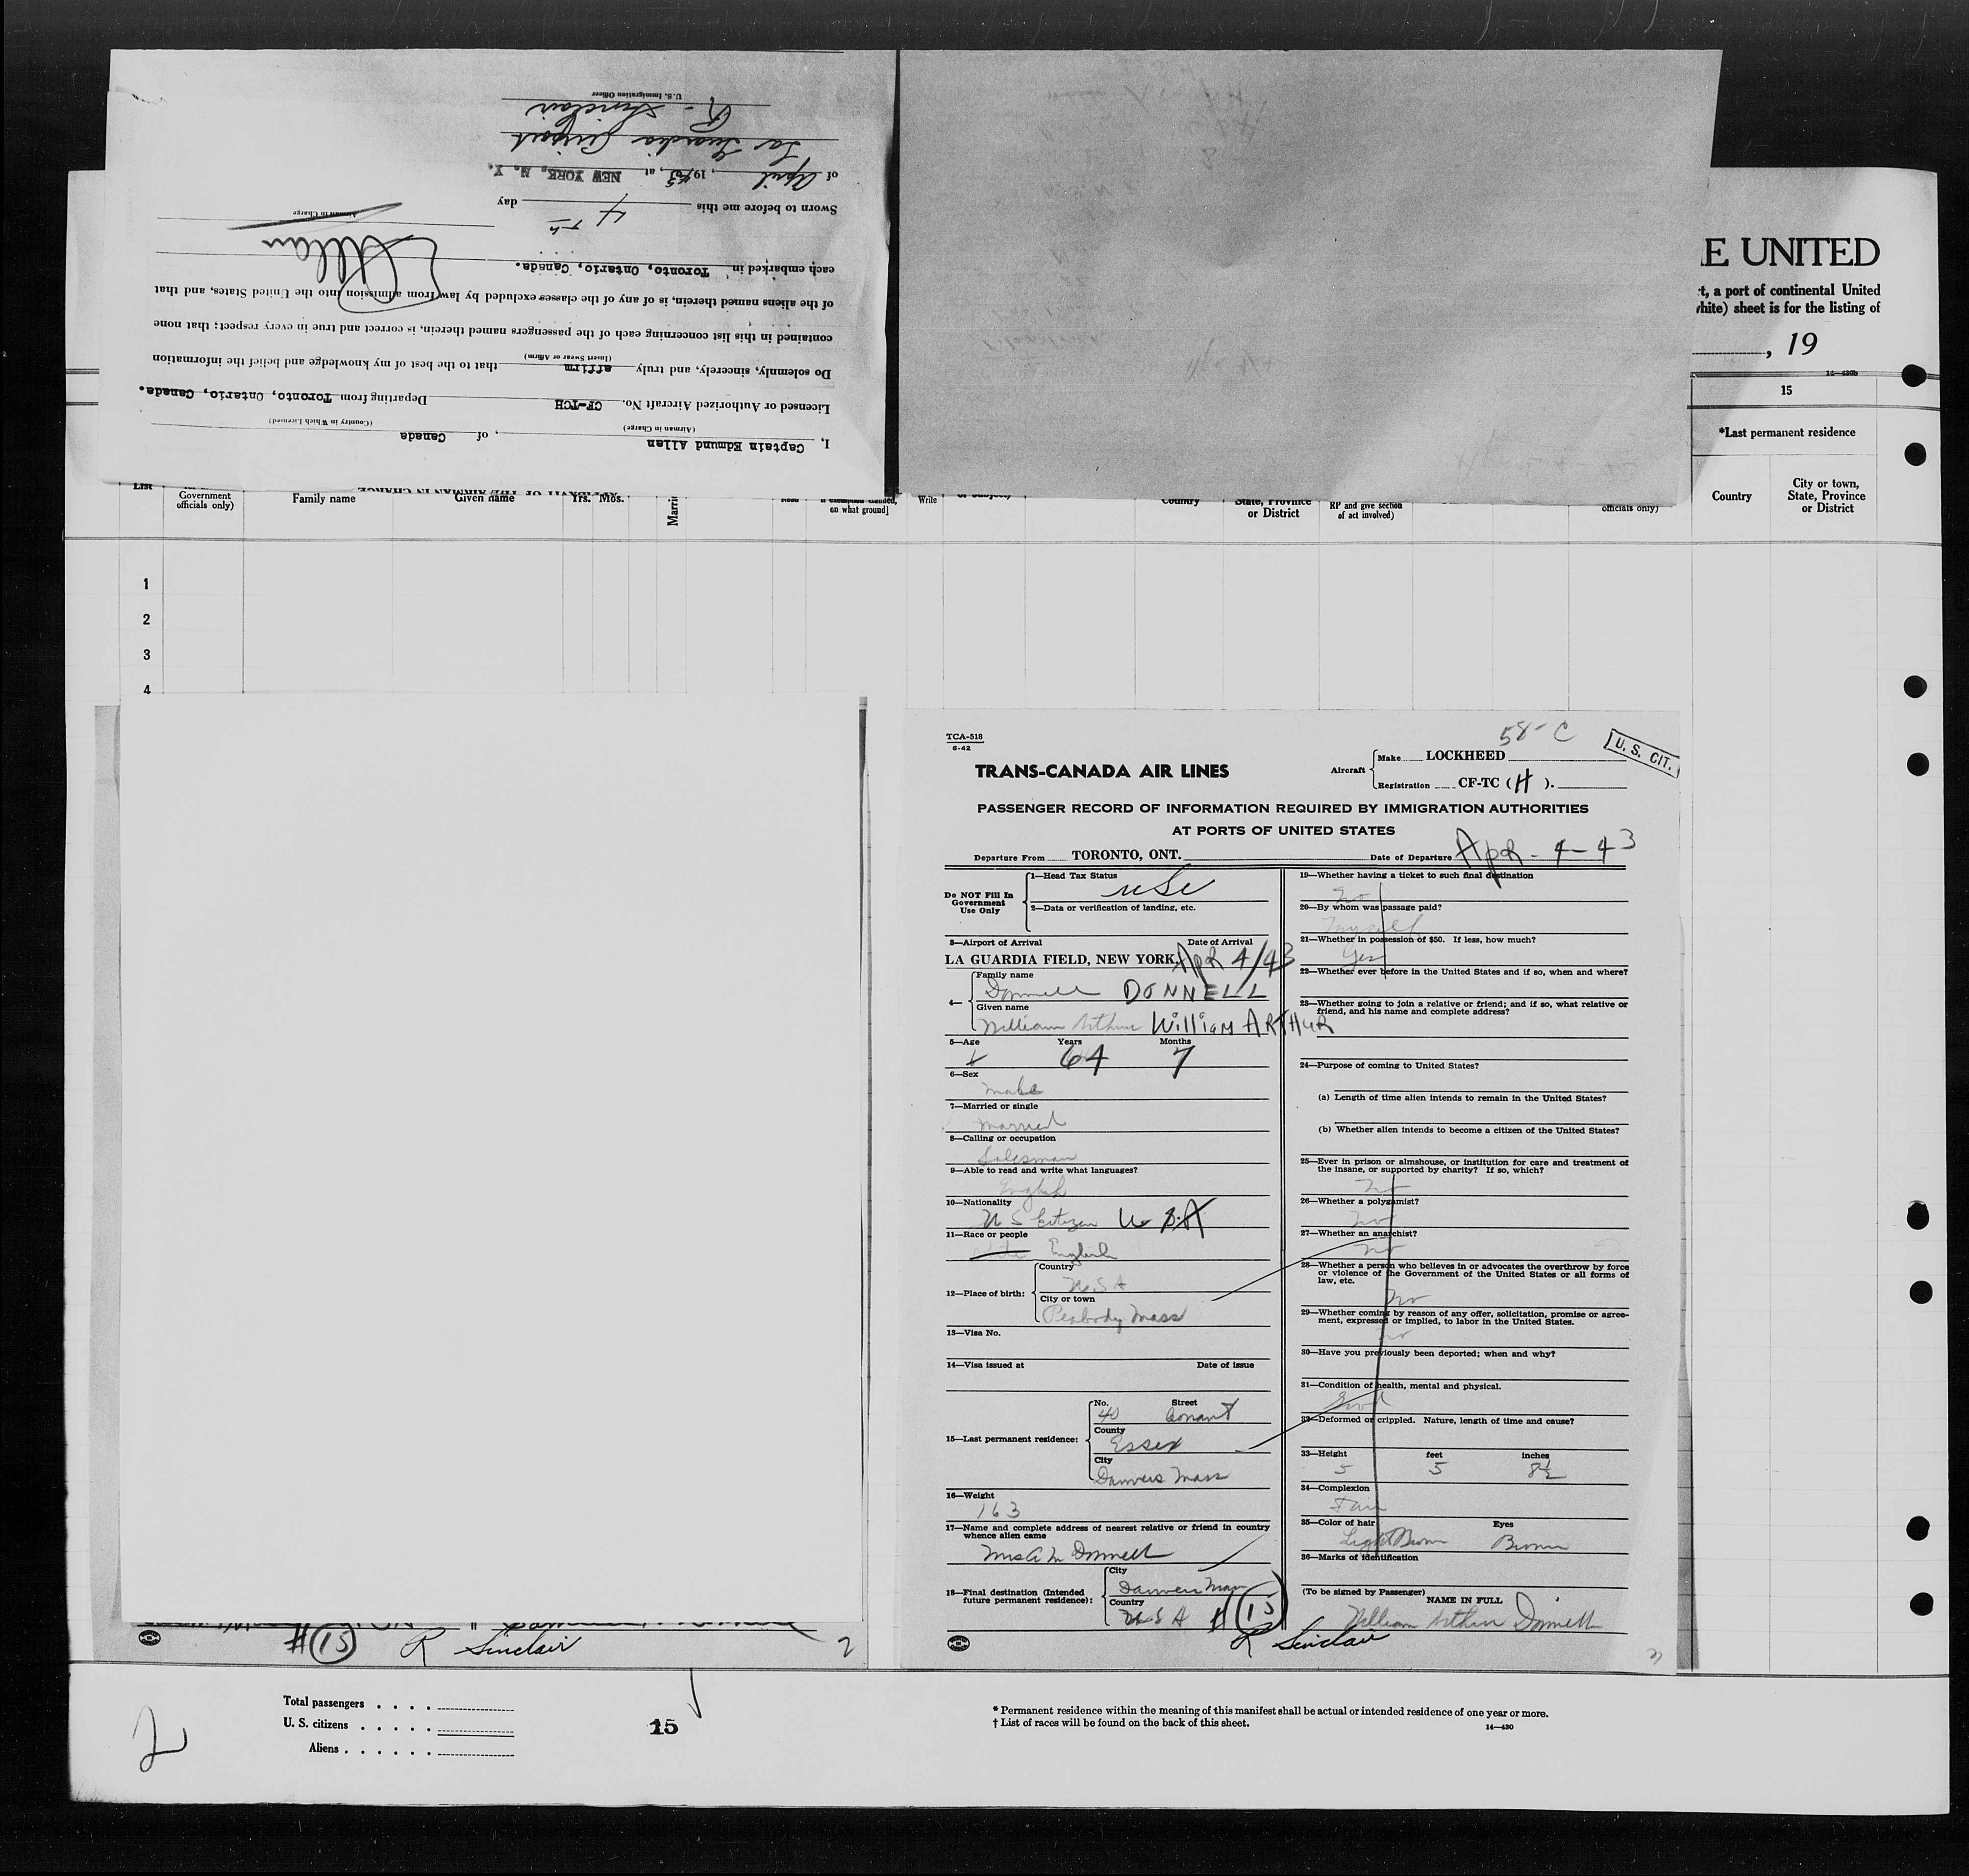 I, Captain Edmund Allan , of Canada
(Airman in Charge) (Country in Which Licensed)
Licensed or Authorized Aircraft No. CF-TCH Departing from Toronto, Ontario, Canada.
Do solemnly, sincerely, and truly affirm that to the best of my knowledge and belief the information
(Insert Swear or Affirm)
contained in this list concerning each of the passengers named therein, is correct and true in every respect; that none
of the aliens named therein, is of any of the classes excluded by law from admission into the United States, and that
each embarked in Toronto, Ontario, Canada.
E Allan
Airman in Charge
Sworn to before me this 4th day
of April , 1943, at NEW YORK, N. Y.
La Guardia Airport
R Sinclair
U.S. Immigration Officer
E UNITED
rt, a port of continental United
hite) sheet is for the listing of
, 19
14—430b
15
*Last permanent residence
Country
City or town,
State, Province
or District
List
Government
officials only)
Family name
Given name
Yrs. Mos.
Marri
Read
on what ground]
Write
Country
State, Province
or District
RP and give section
of act involved)
officials only)
1
2
3
4
TCA-518
6-42
58-C
U. S. CIT.
TRANS-CANADA AIR LINES
Aircraft
Make LOCKHEED
Registration CF-TC (H ).
PASSENGER RECORD OF INFORMATION REQUIRED BY IMMIGRATION AUTHORITIES
AT PORTS OF UNITED STATES
Departure From TORONTO, ONT. Date of Departure Apr - 4 - 43
Do NOT Fill In
Government
Use Only
1—Head Tax Status
USC
2—Data or verification of landing, etc.
3—Airport of Arrival Date of Arrival
LA GUARDIA FIELD, NEW YORK, Apr 4/43
4—
Family name
Donnell DONNELL
Given name
William Arthur William ARTHUR
5—Age Years Months
64 7
6—Sex
Male
7—Married or single
Married
8—Calling or occupation
Salesman
9—Able to read and write what languages?
English
10—Nationality
U S Citizen U S A
11—Race or people
English
12—Place of birth:
Country
U S A
City or town
Peabody Mass
13—Visa No.
14—Visa issued at Date of issue
15—Last permanent residence:
No. Street
40 Conant
County
Essex
City
Danvers Mass
16—Weight
163
17—Name and complete address of nearest relative or friend in country
whence alien came
Mrs Donnell
18—Final destination (Intended
future permanent residence):
City
Danvers Mass
Country
U S A # 15
19—Whether having a ticket to such final destination
No
20—By whom was passage paid?
Myself
21—Whether in possession of $50. If less, how much?
Yes
22—Whether ever before in the United States and if so, when and where?
23—Whether going to join a relative or friend; and if so, what relative or
friend, and his name and complete address?
24—Purpose of coming to United States?
(a) Length of time alien intends to remain in the United States?
(b) Whether alien intends to become a citizen of the United States?
25—Ever in prison or almshouse, or institution for care and treatment of
the insane, or supported by charity? If so, which?
No
26—Whether a polygamist?
No
27—Whether an anarchist?
No
28—Whether a person who believes in or advocates the overthrow by force
or violence of the Government of the United States or all forms of
law, etc.
No
29—Whether coming by reason of any offer, solicitation, promise or agree-
ment, expressed or implied, to labor in the United States.
No
30—Have you previously been deported; when and why?
31—Condition of health, mental and physical.
Good
32—Deformed or crippled. Nature, length of time and cause?
33—Height feet inches
5 5 8½
34—Complexion
Fair
35—Color of hair Eyes
Light Brown Brown
36—Marks of identification
(To be signed by Passenger)
NAME IN FULL
William Arthur Donnell
R Sinclair
# 15 R Sinclair 2
2
Total passengers . . . .
U. S. citizens . . . . .
Aliens . . . . . .
15
* Permanent residence within the meaning of this manifest shall be actual or intended residence of one year or more.
† List of races will be found on the back of this sheet.
14—430